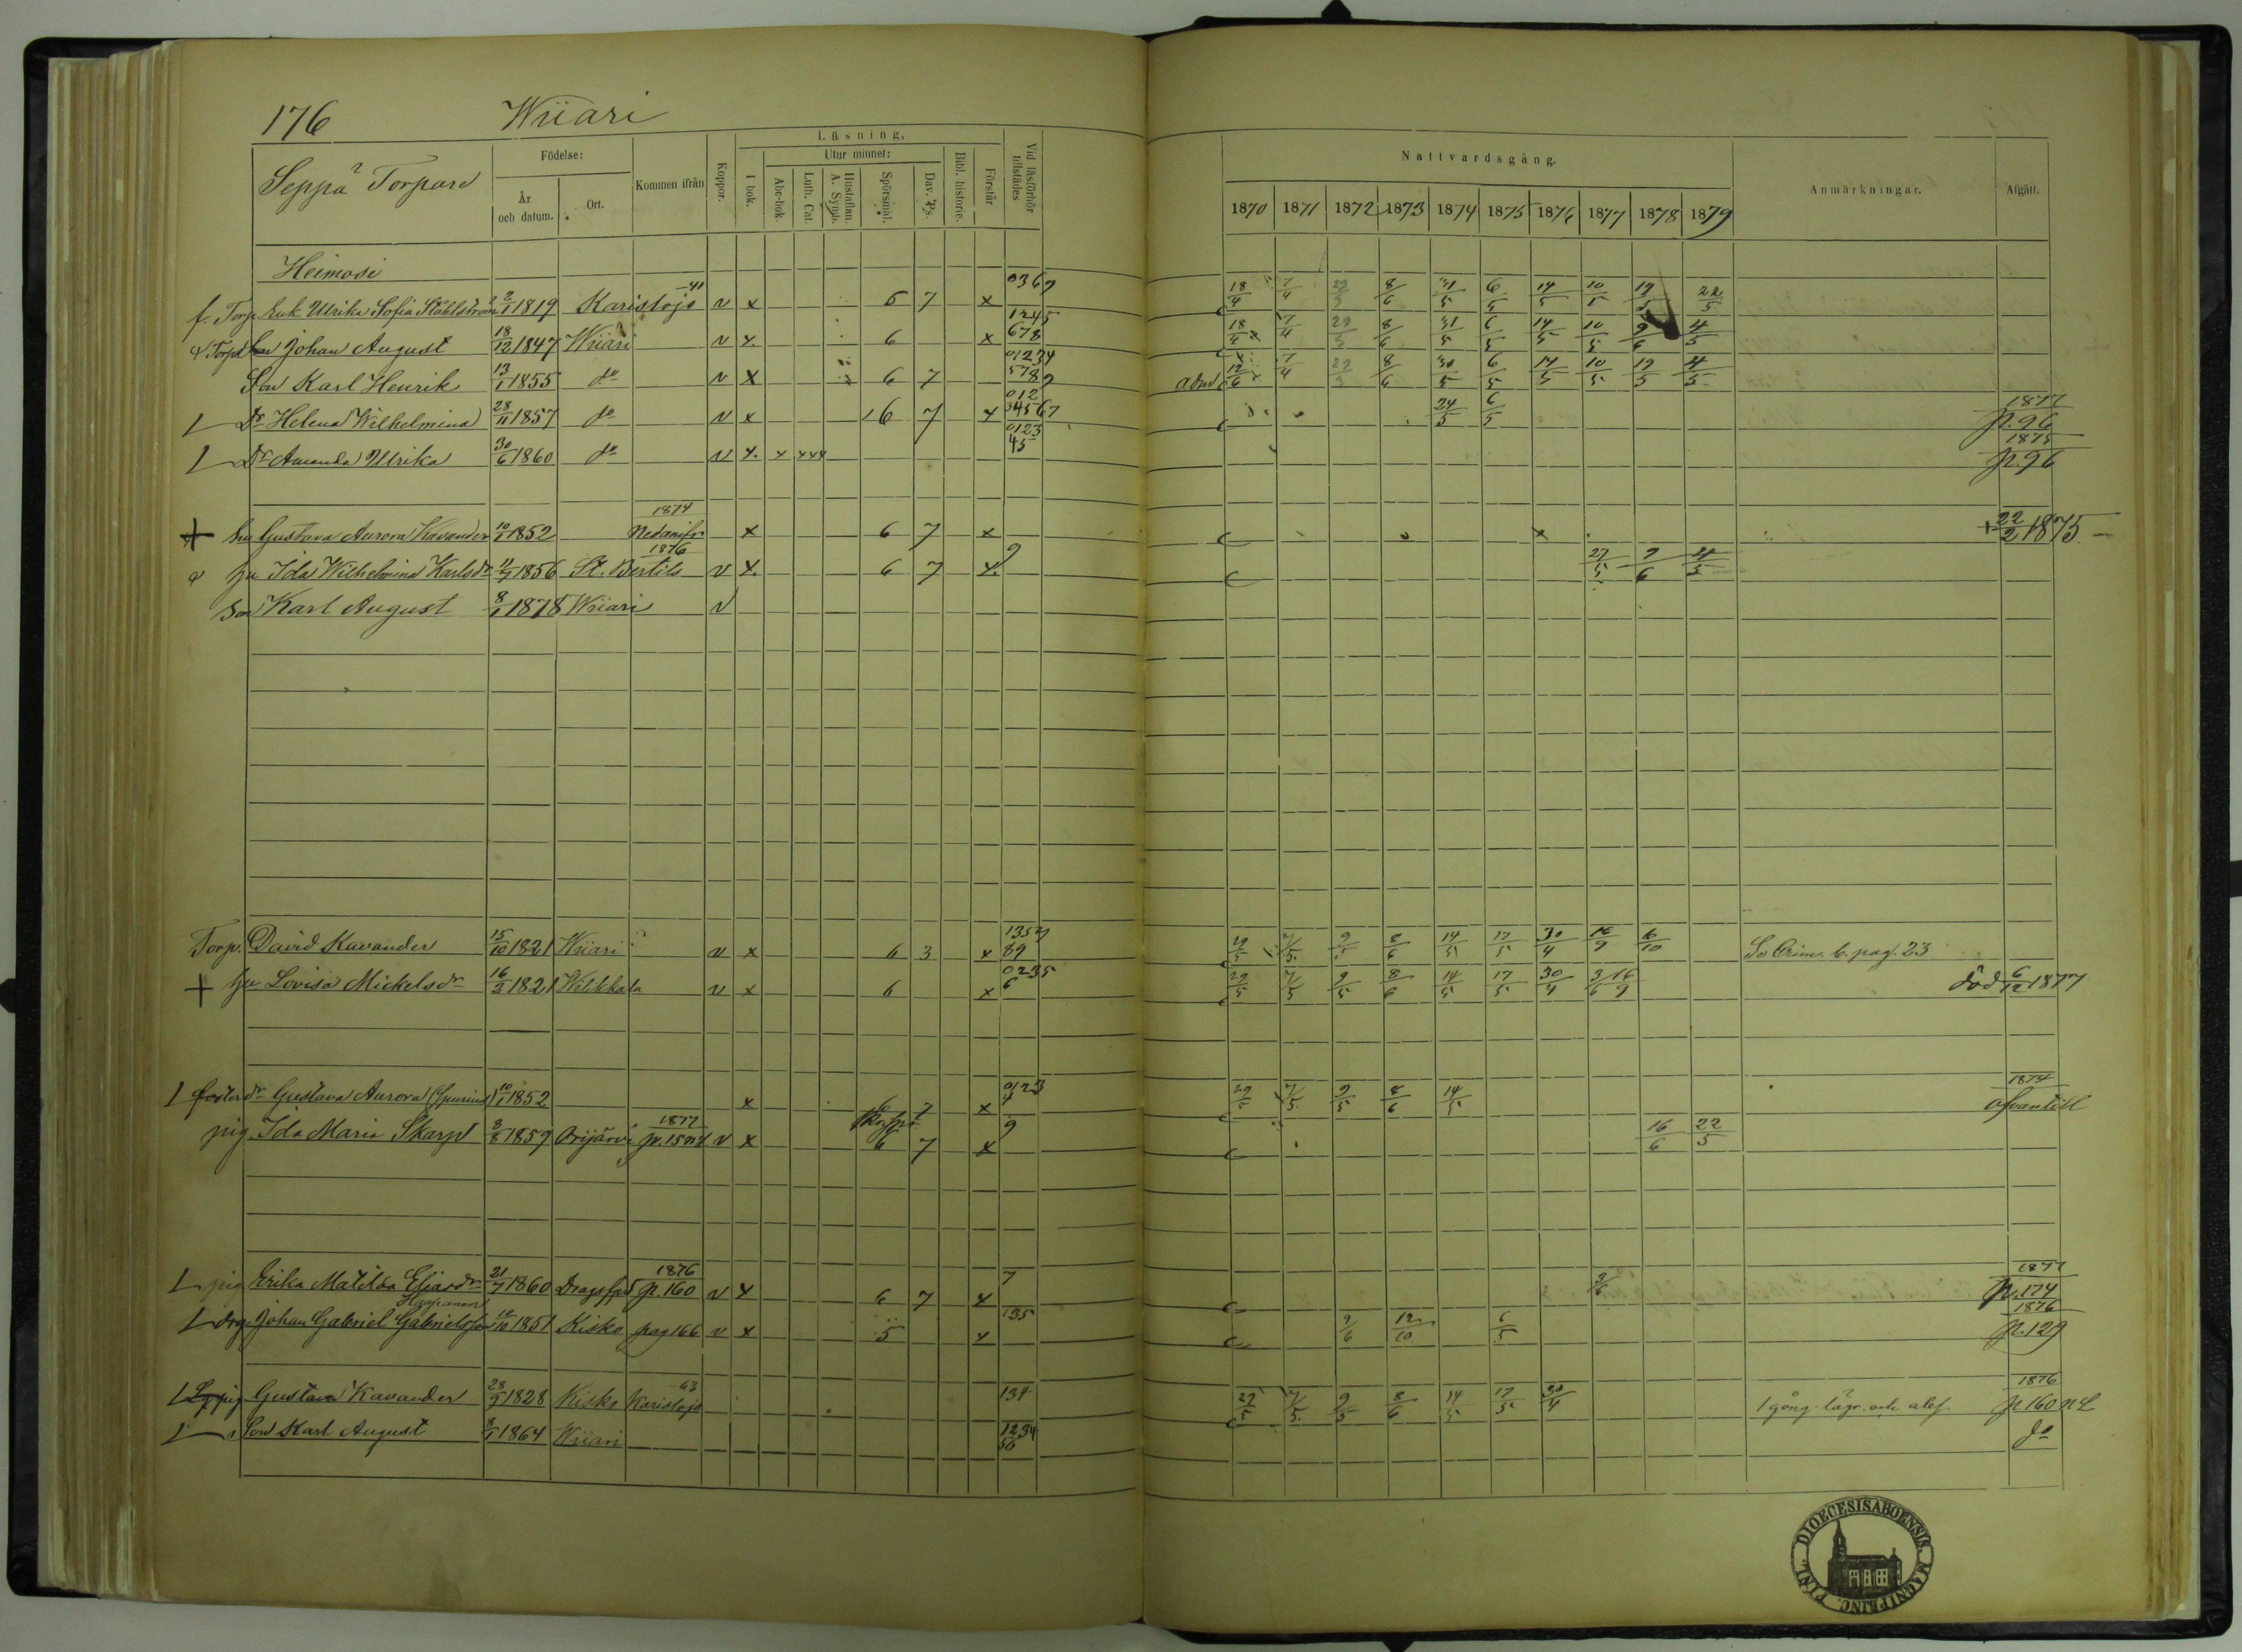 176 Wiiari
Seppä Torpare
Födelse:
År och datum.
Ort.
Kommen ifrån
Koppor.
Läsning,
I bok.
Utur minnet:
Abc-bok.
Luth. Cat.
Hustaflan. A. Symb.
Spörsmål.
Dav. Ps.
Bibl. historie.
Förstår
Vid läsförhör tillstädes
Nattvardsgång.
1870 1871 1872 1873 1874 1875 1876 1877 1878 1879
Anmärkningar.
Afgått.
Heimosi
f. Torp. Enk. Ulrika Sofia Ståhlström 2/1 1819 Karislojo -41 v x 6 7 x 0369 18/4 7/4 29/5 8/6 31/5 6/5 14/5 10/5 19/5 22/5
Torp. Johan August 18/12 1847 Wiiari v x 6 x 1245 678 18/4 7/4 29/5 8/6 31/5 6/5 14/5 10/5 9/6 4/5
Son Karl Henrik 13/1 1855 do v x 6 7 01234 5789 adm 12/6 7/4 29/5 8/6 30/5 6/5 14/5 10/5 19/5 4/5
Dr Helena Wilhelmina 28/11 1857 do v x 6 7 x 012 34567 24/5 6/5 1877 p. 96
Dr Amanda Ulrika 30/6 1860 do v x x xxx 0123 45 1875 p. 96
+ hu Gustava Aurora Kavander 10/1 1852 1874 Nedanifr. x 6 7 x + 22/2 1875
hu Ida Wilhelmina Karlsdr 11/9 1856 1876 St. Bertils v x 6 7 x 9 27/5 9/6 4/5
son Karl August 8/1 1878 Wiiari v
Torp. David Kavander 15/10 1821 Wiiari v x 6 3 x 1357 89 29/5 7/5 9/5 8/6 14/5 17/5 30/4 16/9 6/10 Se Crim. b. pag. 23
+ hu Lovisa Mickelsdr 16/3 1821 v x 6 x 0235 6 29/5 7/5 9/5 8/6 14/5 17/5 30/4 3/6 16/9 död 6/12 1877
fosterdr Gustava Aurora (Spurius) 10/1 1852 x 6 7 x 0123 4 29/5 7/5 9/5 8/6 14/5 1874 ofvantill
pig. Ida Maria Skarp 3/8 1859 Orijärvi 1877 v x 6 7 x 9 16/6 22/5
pig Erika Matilda Eliasdr 21/7 1860 Dragsfjrd 1876 p. 160 v x 6 7 x 7 1877 p. 174
Haapanen
drg Johan Gabriel Gabrielsson 10/10 1851 Kisko pag 166 v x 5 x 135 9/6 12/10 6/5 1876 p. 129
pig Gustava Kavander 28/9 1828 Kisko 63 Karislojo 134 29/5 7/5 9/5 8/6 14/5 17/5 30/4 1 gång lägr. och abs. 1876 p 160
Son Karl August 8/1 1864 Wiiari 1234 56 do
DIOECESIS ABOENSIS. MAGNI PRINC. FINL.